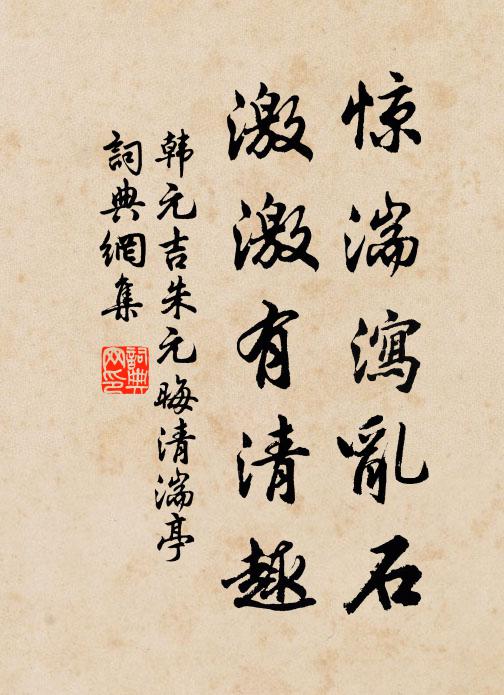 惊湍瀉亂石
激激有清趣
韩元吉朱元晦清湍亭
詞典網集
詞典网印